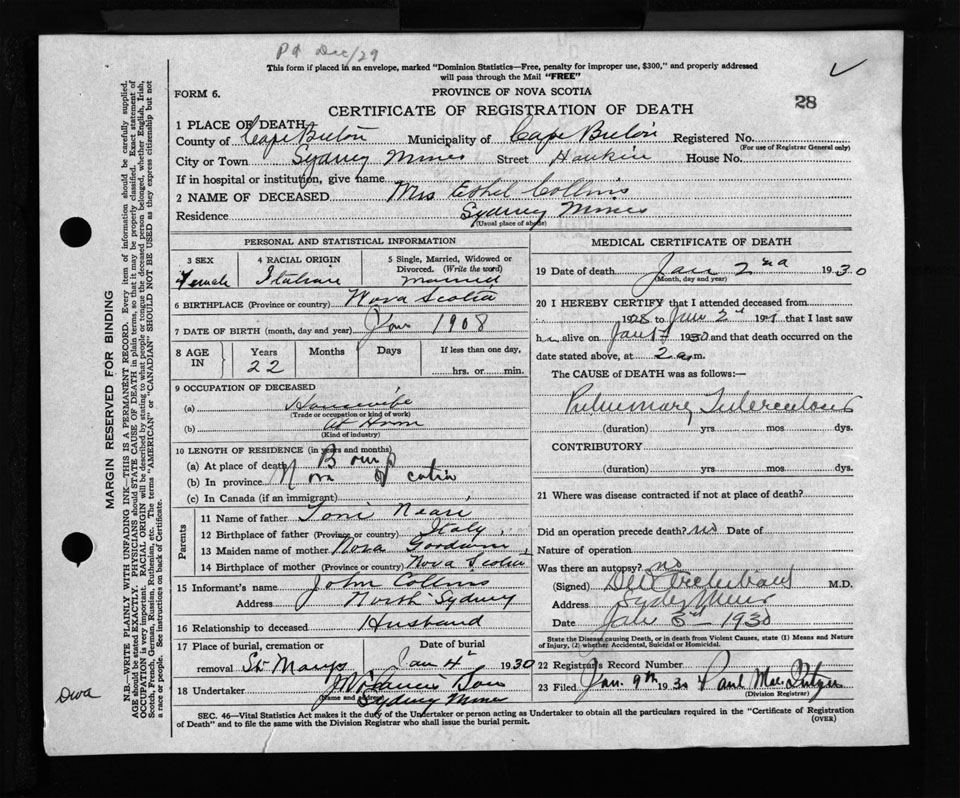 Pd Dec/29
This form if placed in an envelope, marked "Dominion Statistics—Free, penalty for improper use, $300," and properly addressed
will pass through the Mail "FREE"
FORM 6.
PROVINCE OF NOVA SCOTIA
28
CERTIFICATE OF REGISTRATION OF DEATH
1 PLACE OF DEATH
County of Cape Breton Municipality of Cape Breton Registered No.
(For use of Registrar General only)
City or Town Sydney Mines Street House No.
If in hospital or institution, give name
2 NAME OF DECEASED Mrs Ethel Collins
Residence Sydney Mines
(Usual place of abode)
PERSONAL AND STATISTICAL INFORMATION
3 SEX
Female
4 RACIAL ORIGIN
Italian
5 Single, Married, Widowed or
Divorced. (Write the word)
Married
6 BIRTHPLACE (Province or country) Nova Scotia
7 DATE OF BIRTH (month, day and year) Jan 1908
8 AGE IN
Years Months Days If less than one day,
22 hrs. or min.
9 OCCUPATION OF DECEASED
(a) Housewife
(Trade or occupation or kind of work)
(b) At Home
(Kind of industry)
10 LENGTH OF RESIDENCE (in years and months)
(a) At place of death Born
(b) In province Nova Scotia
(c) In Canada (if an immigrant)
Parents
11 Name of father Toni
12 Birthplace of father (Province or country) Italy
13 Maiden name of mother Goodwin
14 Birthplace of mother (Province or country) Nova Scotia
15 Informant's name John Collins
Address North Sydney
16 Relationship to deceased Husband
17 Place of burial, cremation or Date of burial
removal St Marys Jan 4 1930
18 Undertaker
(Name and address)
Sydney Mines
MEDICAL CERTIFICATE OF DEATH
19 Date of death Jan 2nd 1930
(Month, day and year)
20 I HEREBY CERTIFY that I attended deceased from
1928 to 2d 19 that I last saw
h alive on Jan 1st 1930 and that death occurred on the
date stated above, at 2 a.m.
The CAUSE of DEATH was as follows:—
Pulmonary Tuberculous
(duration) yrs mos dys.
CONTRIBUTORY
(duration) yrs. mos. dys.
21 Where was disease contracted if not at place of death?
Did an operation precede death? no Date of
Nature of operation
Was there an autopsy? no
(Signed) M.D.
Address Sydney Mines
Date Jan 3rd 1930
State the Disease causing Death, or in death from Violent Causes, state (1) Means and Nature
of Injury, (2) whether Accidental, Suicidal or Homicidal.
22 Registrar's Record Number
23 Filed Jan. 9th 1930 Paul Mac
(Division Registrar)
SEC. 46—Vital Statistics Act makes it the duty of the Undertaker or person acting as Undertaker to obtain all the particulars required in the "Certificate of Registration
of Death" and to file the same with the Division Registrar who shall issue the burial permit.
(OVER)
MARGIN RESERVED FOR BINDING
N.B.—WRITE PLAINLY WITH UNFADING INK—THIS IS A PERMANENT RECORD. Every item of information should be carefully supplied.
AGE should be stated EXACTLY. PHYSICIANS should STATE CAUSE OF DEATH in plain terms, so that it may be properly classified. Exact statement of
OCCUPATION is very important. RACIAL ORIGIN will be described by stating to what people or tongue the deceased person belonged, whether English, Irish,
Scotch, French, German, Russian, Ruthenian, etc. The terms "AMERICAN" or "CANADIAN" SHOULD NOT BE USED as they express citizenship but not
a race or people. See instructions on back of Certificate.